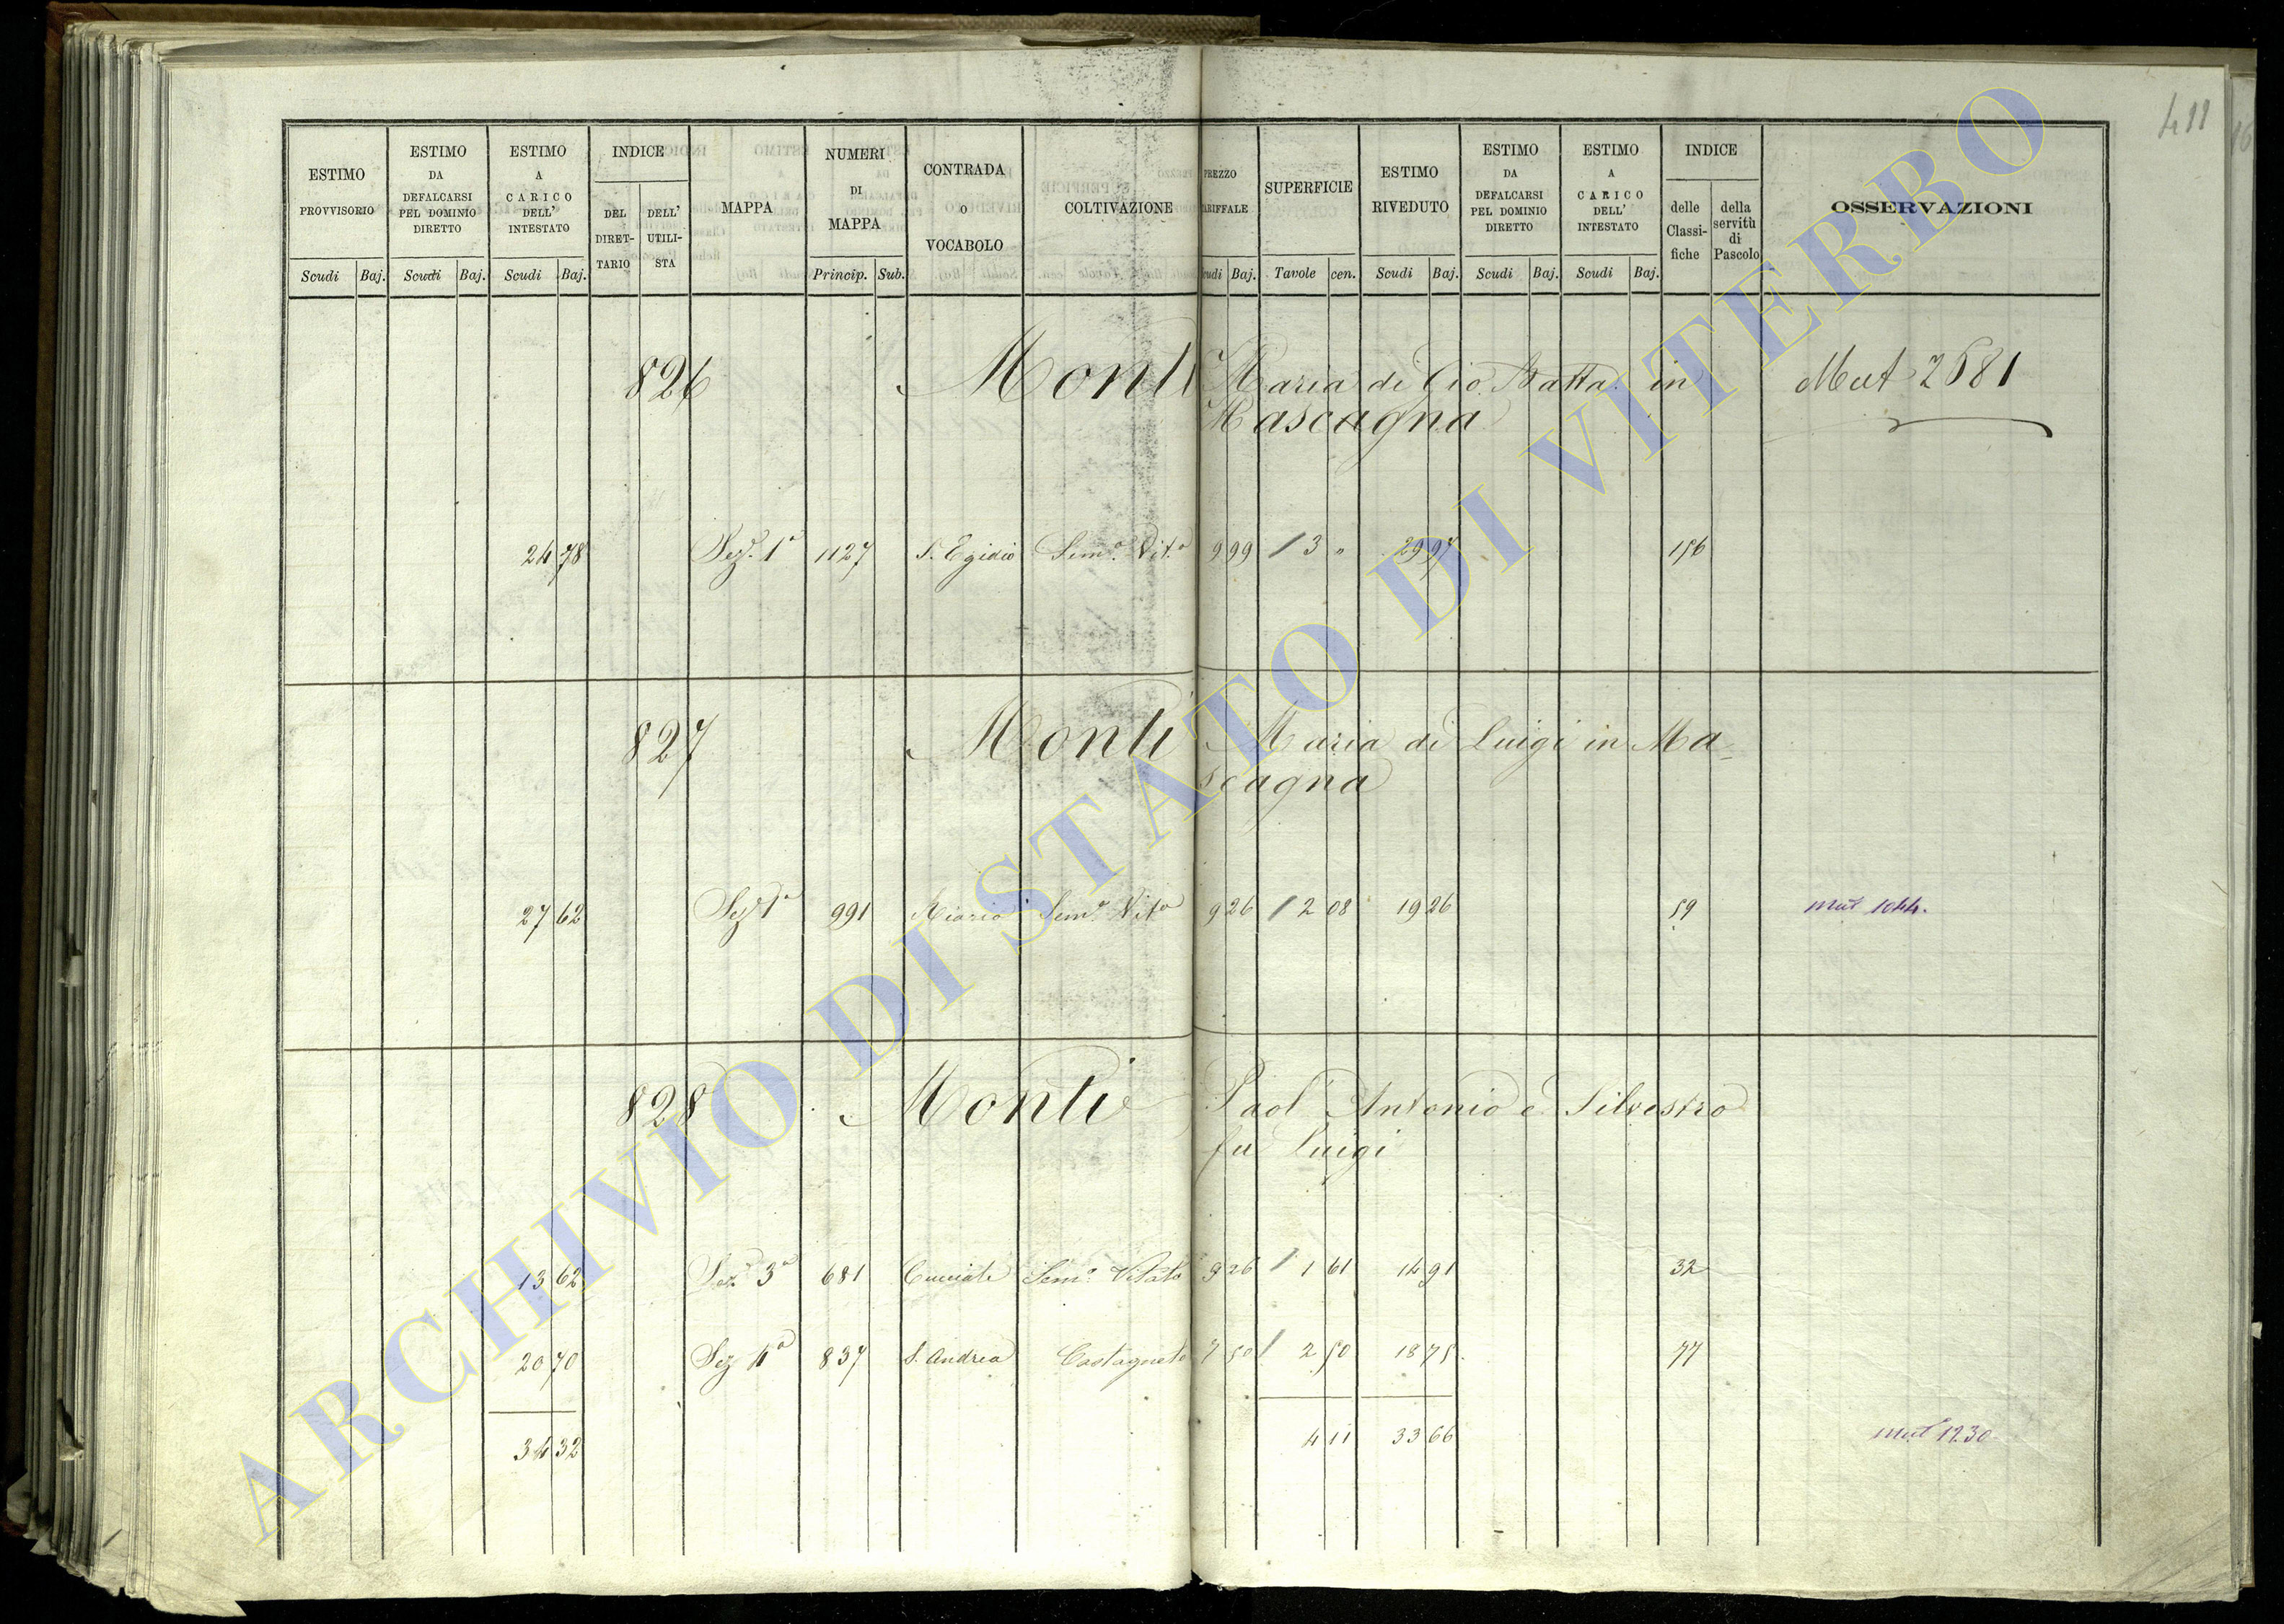 411
ESTIMO PROVVISORIO Scudi Baj.
ESTIMO DA DEFALCARSI PEL DOMINIO DIRETTO Scudi Baj.
ESTIMO A CARICO DELL' INTESTATO Scudi Baj.
INDICE DEL DIRETTARIO DELL' UTILISTA
MAPPA
NUMERI DI MAPPA Princip. Sub.
CONTRADA O VOCABOLO
COLTIVAZIONE
SUPERFICIE Tavole cen.
ESTIMO RIVEDUTO Scudi Baj.
ESTIMO DA DEFALCARSI PEL DOMINIO DIRETTO Scudi Baj.
ESTIMO A CARICO DELL' INTESTATO Scudi Baj.
INDICE delle Classifiche della servitù di Pascolo
OSSERVAZIONI
826 Monti Maria di Gio. Batta. in Mut 2681
Mascagna
24 78 Sez. 1a 1127 S. Egidio Semo. Vito. 9 99 / 3 " 29 97 156
827 Monti Maria di Luigi in Ma-
scagna
27 62 Sez. 1a 991 Riario Semo. Vito 9 26 / 2 08 19 26 59 mut 1044.
828 Monti Paol' Antonio e Silvestro
fu Luigi
13 62 Sez. 3a 681 Semo. Vitato 9 26 / 1 61 14 91 32
20 70 Sez 4a 837 S. Andrea Castagneto 7 50 / 2 50 18 75 77
34 32 4 11 33 66 mut 1230
ARCHIVIO DI STATO DI VITERBO